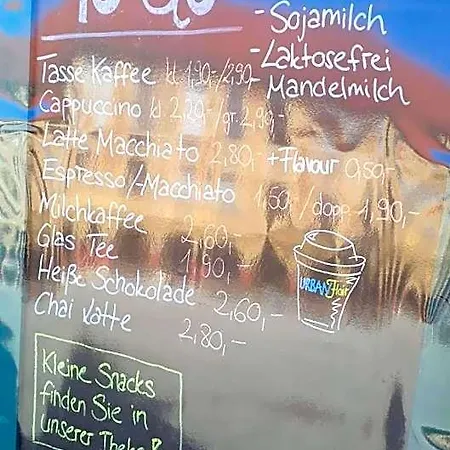 To Go
- Sojamilch
- Laktosefrei
Mandelmilch
Tasse Kaffee kl. 1,90,-/2,90,-
Cappuccino kl. 2,20,-/gr. 2,90,-
Latte Macchiato 2,80,- + Flavour 0,50,-
Espresso/-Macchiato 1,50,-/dopp. 1,90,-
Milchkaffee 2,60,-
Glas Tee 1,90,-
Heiße Schokolade 2,60,-
Chai Latte 2,80,-
URBAN Flair
Kleine Snacks
finden Sie in
unserer Theke!